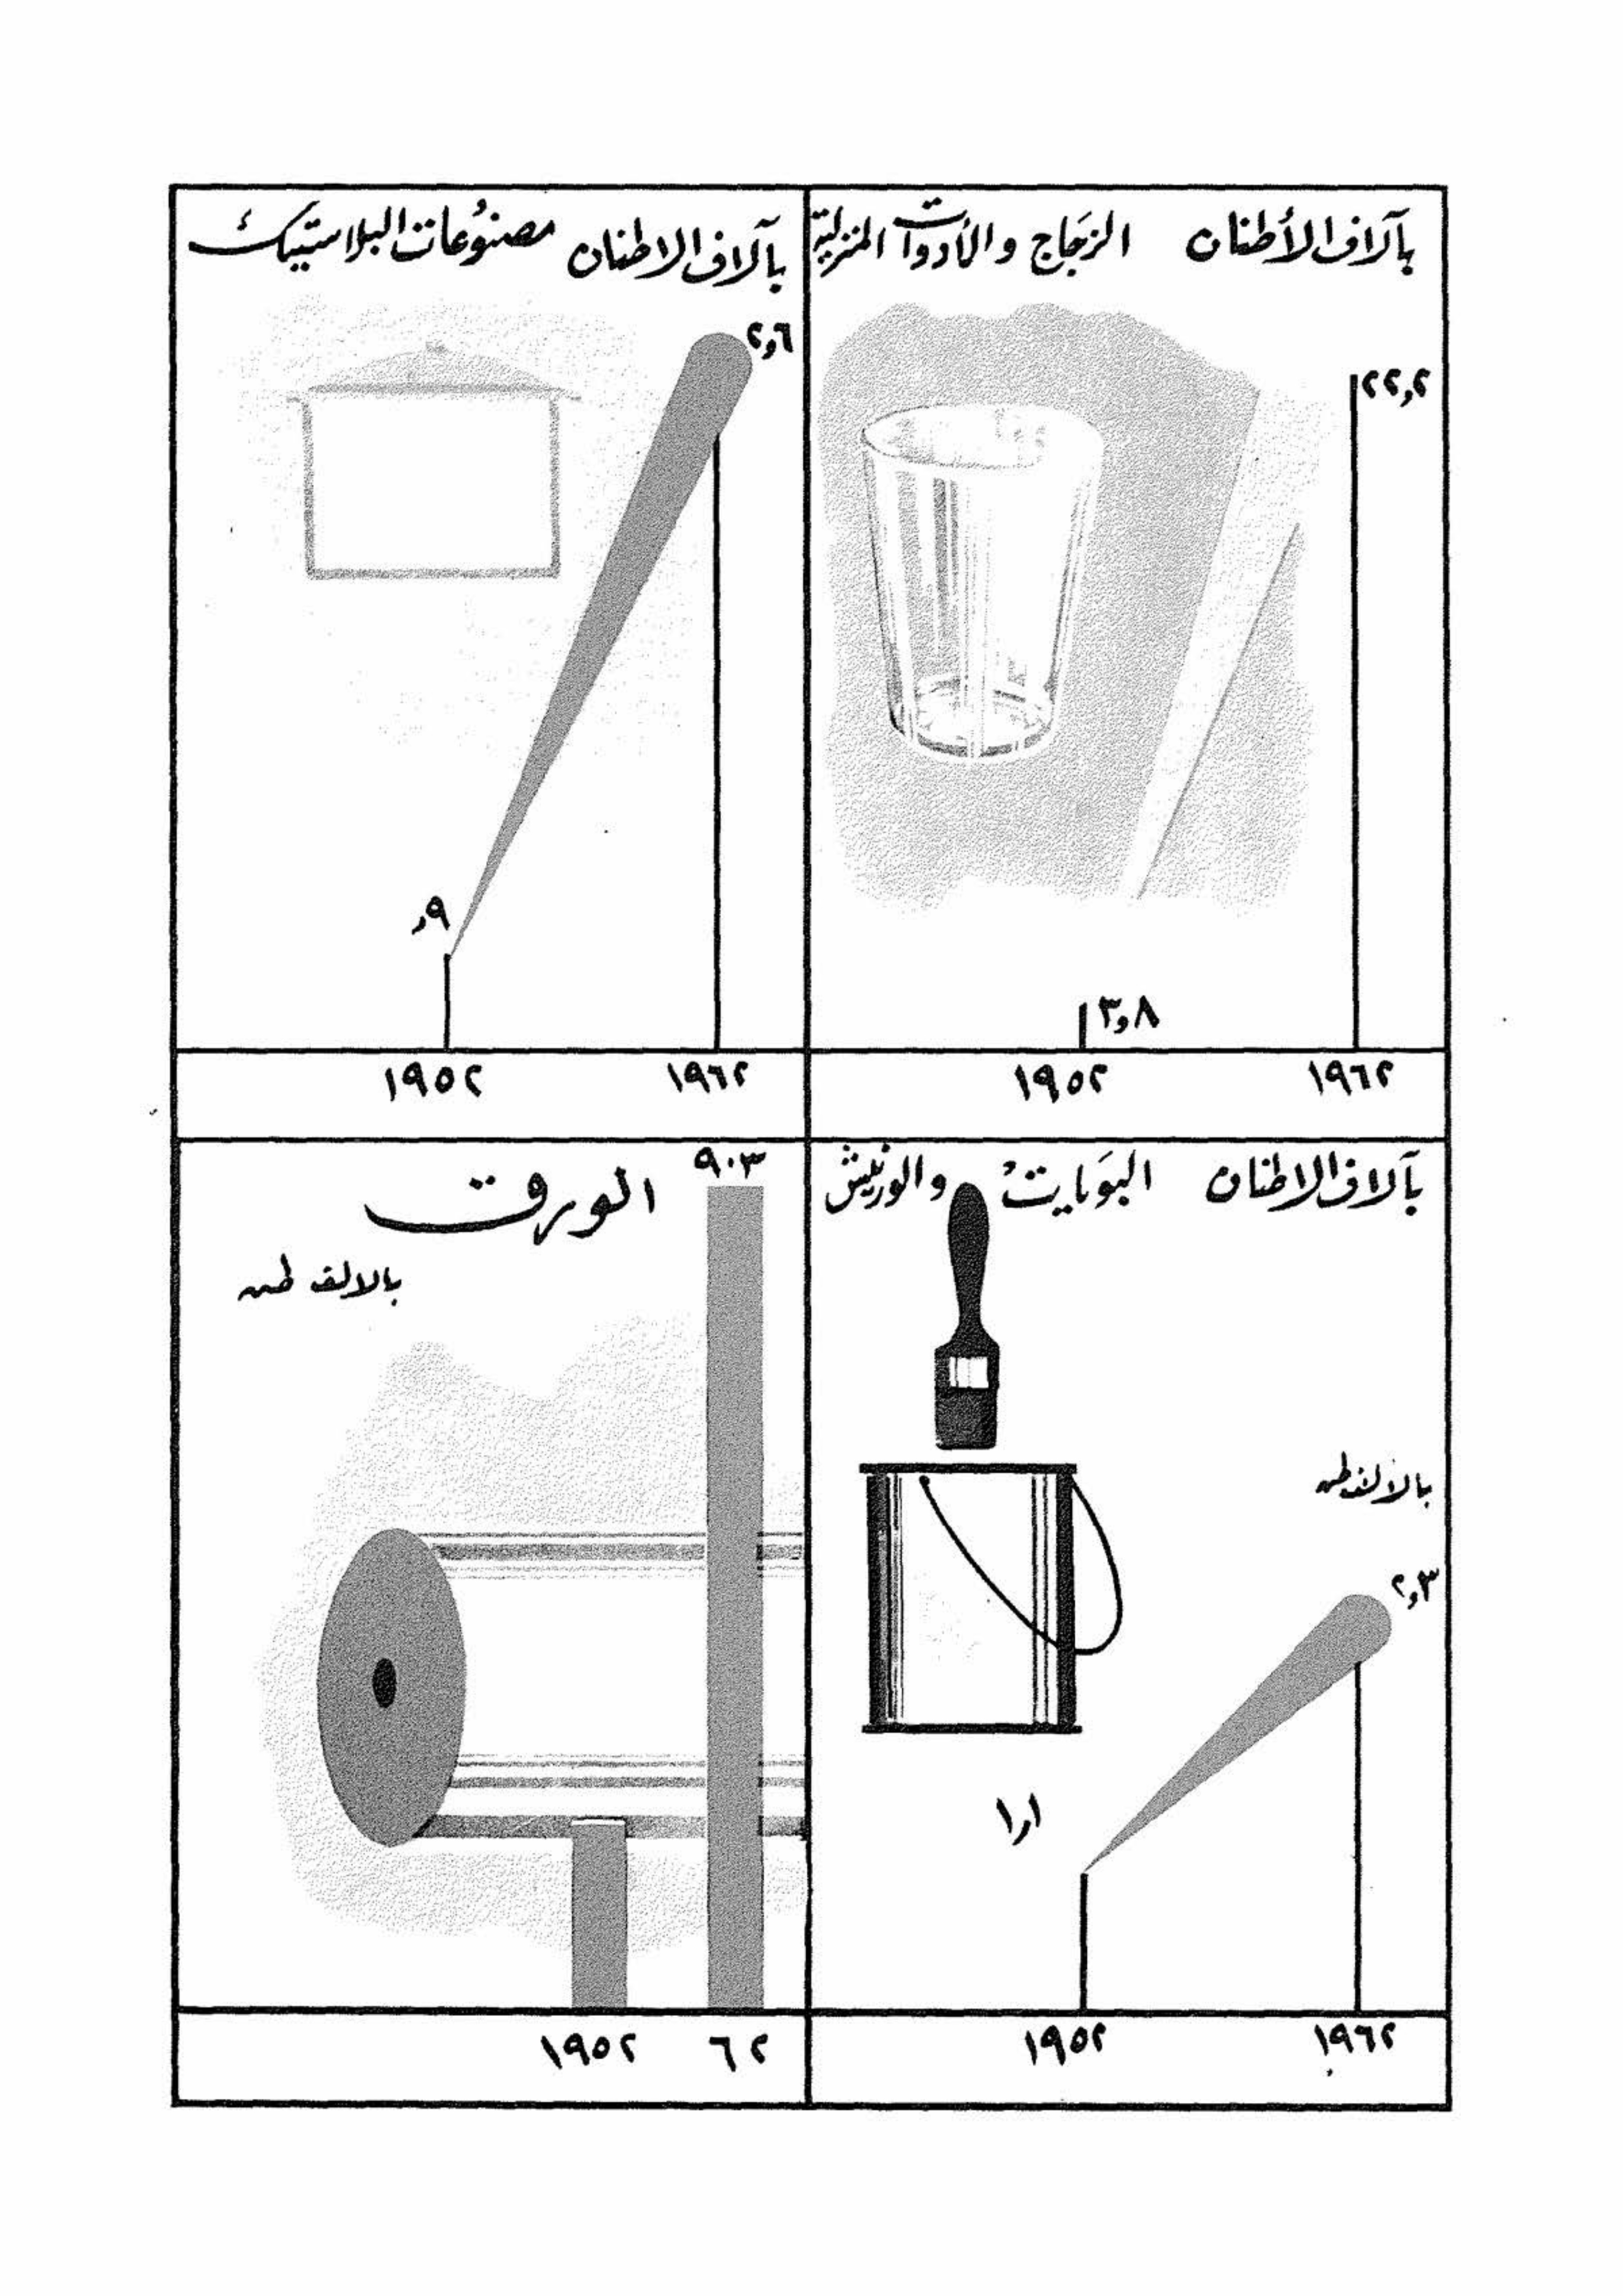 بآلاف الأطنان الزجاج والأدوات المنزلية
٢٢,٢
٣,٨
١٩٥٢ ١٩٦٢
بآلاف الاطنان مصنوعات البلاستيك
٢,٦
,٩
١٩٥٢ ١٩٦٢
بآلاف الاطنان البويات والورنيش
بالالف طن
٢,٣
١,١
١٩٥٢ ١٩٦٢
الورق
٩٠٣
بالالف طن
١٩٥٢ ٦٢